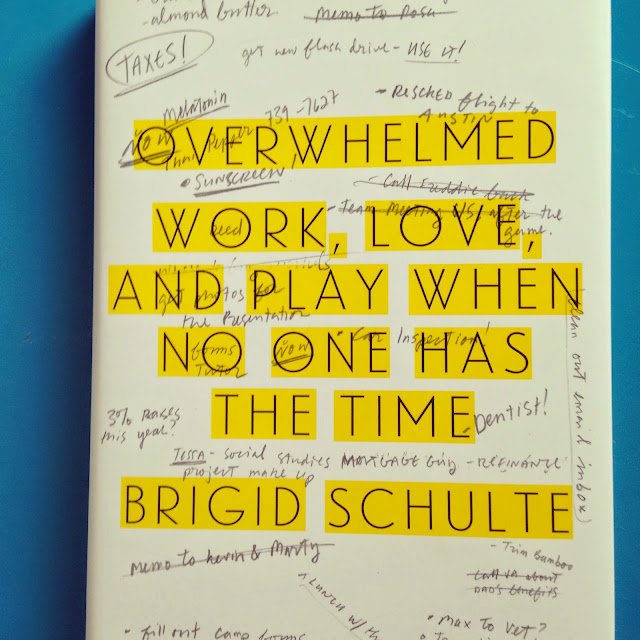 - almond butter Memo to Rosa
TAXES! get new flash drive - USE IT!
Melatonin 739-7627 • RESCHED flight to
AUSTIN
NOW
OVERWHELMED
• SUNSCREEN! - Call Freddie back
- Team Meeting US after the
game.
need
WORK, LOVE,
AND PLAY WHEN
get photos for
the Presentation
NO ONE HAS
forms NOW • Car Inspection!
Tutor
clean out email inbox
THE TIME
3% RAISES
this year?
Dentist!
TESSA - social studies MORTGAGE Guy - REFINANCE
project make up
BRIGID SCHULTE
Memo to Kevin & Marty
- Trim Bamboo
Call VA about
DAD'S benefits
LUNCH w/
• fill out camp forms • Max to vet?